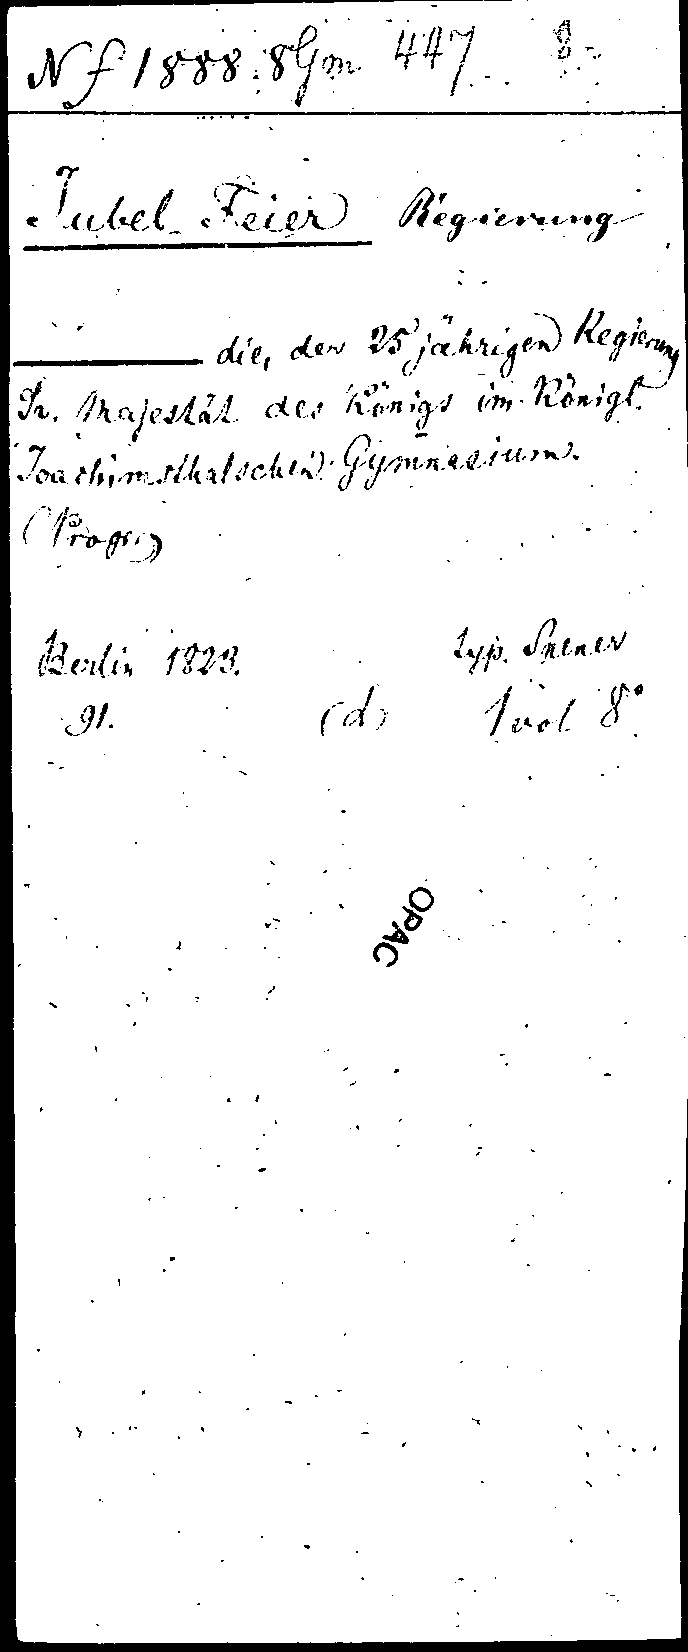 Nf 1888. 8 Gm 447 8-
Jubel-Feier Regierung
die, der 25 jährigen Regierung
Sr. Majestät des Königs im Königl.
Joachimsthalschen Gymnasium.
(Progr.)
Berlin 1823. typ. Spener
91. (d) 1 vol 8°
OPAC